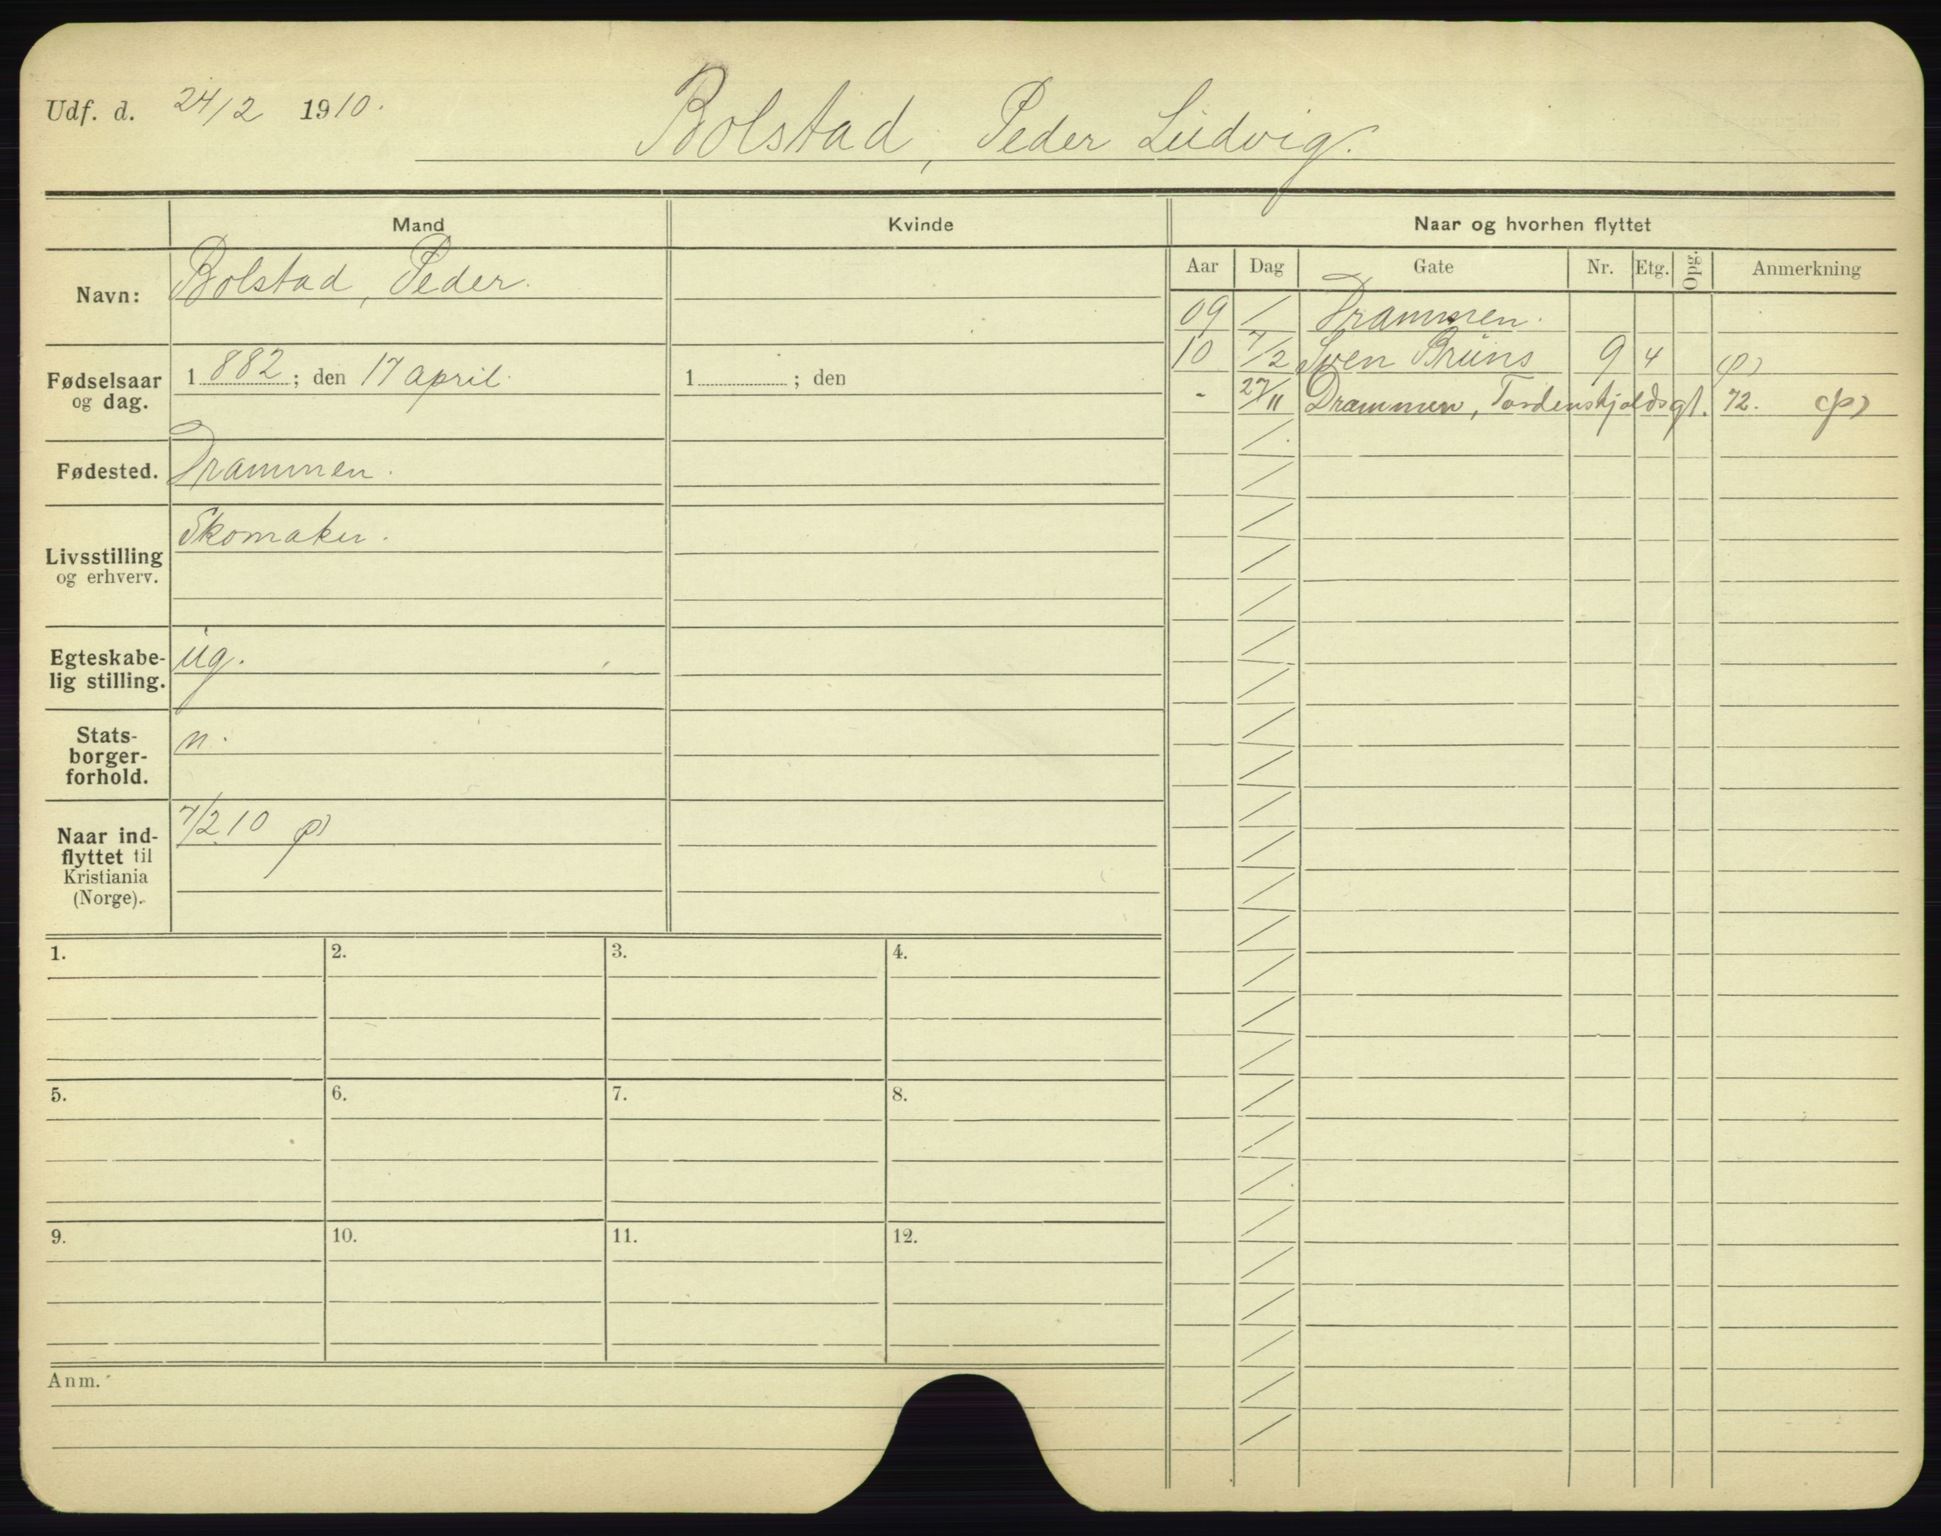 Udf. d. 24/2 1910.
Bolstad, Peder Ludvig.
Mand
Kvinde
Naar og hvorhen flyttet
Navn:
Bolstad, Peder.
Fødselsaar og dag.
1882; den 17 april.
1 ; den
Fødested.
Drammen.
Livsstilling og erhverv.
Skomaker.
Egteskabe-
lig stilling.
ug.
Stats-
borger-
forhold.
n.
Naar ind-
flyttet til
Kristiania
(Norge).
7/2 10 p)
Aar Dag Gate Nr. Etg. Opg. Anmerkning
09 / Drammen.
10 7/2 Sven Bruns 9 4 p)
- 27/11 Drammen, Tordenskjoldsgt. 72. p)
1. 2. 3. 4.
5. 6. 7. 8.
9. 10. 11. 12.
Anm.